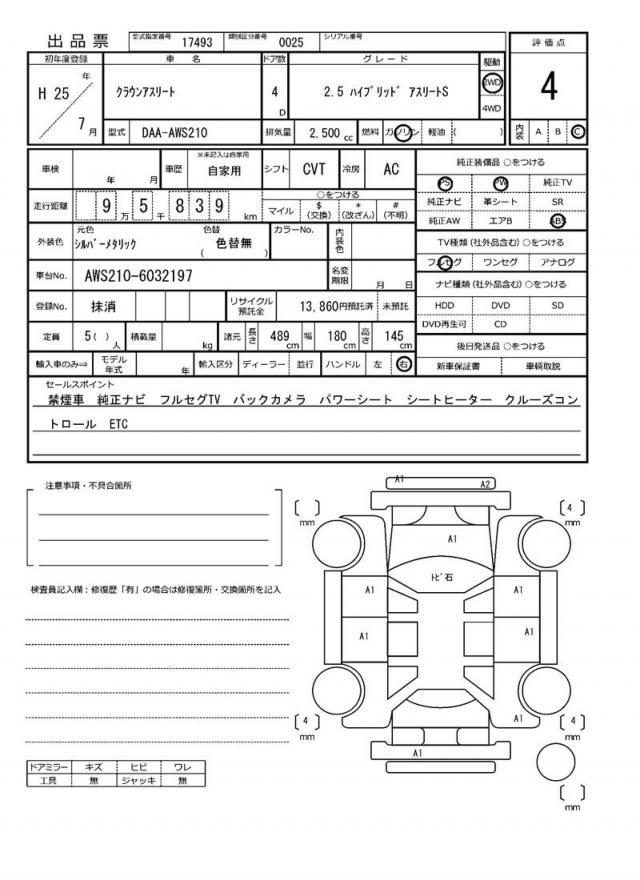 出品票 型式指定番号 17493 類別区分番号 0025 シリアル番号
初年度登録 車名 ドア数 グレード 駆動 評価点
H 25 年 7 月 クラウンアスリート 4 D 2.5 ハイブリッド アスリートS 2WD 4WD 4
型式 DAA-AWS210 排気量 2,500 cc 燃料 ガソリン 軽油 ( ) 内装 A B C
車検 年 月 車歴 ※未記入は自家用 自家用 シフト CVT 冷房 AC 純正装備品 ○をつける
PS PW 純正TV
走行距離 9 万 5 千 8 3 9 km ○をつける 純正ナビ 革シート SR
マイル $ (交換) * (改ざん) # (不明) 純正AW エアB ABS
外装色 元色 シルバーメタリック 色替 ( 色替無 ) カラーNo. 内装色 TV種類 (社外品含む) ○をつける
フルセグ ワンセグ アナログ
車台No. AWS210-6032197 名変期限 月 日 ナビ種類 (社外品含む) ○をつける
登録No. 抹消 リサイクル預託金 13,860円預託済 未預託 HDD DVD SD
DVD再生可 CD
定員 5 ( ) 人 積載量 kg 諸元 長さ 489 cm 幅 180 cm 高さ 145 cm 後日発送品 ○をつける
輸入車のみ⇒ モデル年式 年 輸入区分 ディーラー 並行 ハンドル 左 右 新車保証書 車輌取説
セールスポイント
禁煙車 純正ナビ フルセグTV バックカメラ パワーシート シートヒーター クルーズコン
トロール ETC
注意事項・不具合箇所
A1 A2
( ) mm ( 4 ) mm
A1
トビ石
検査員記入欄：修復歴「有」の場合は修復箇所・交換箇所を記入
A1 A1
A1 A1
A1
( 4 ) mm ( 4 ) mm
A1
ドアミラー キズ ヒビ ワレ
工具 無 ジャッキ 無
( ) mm